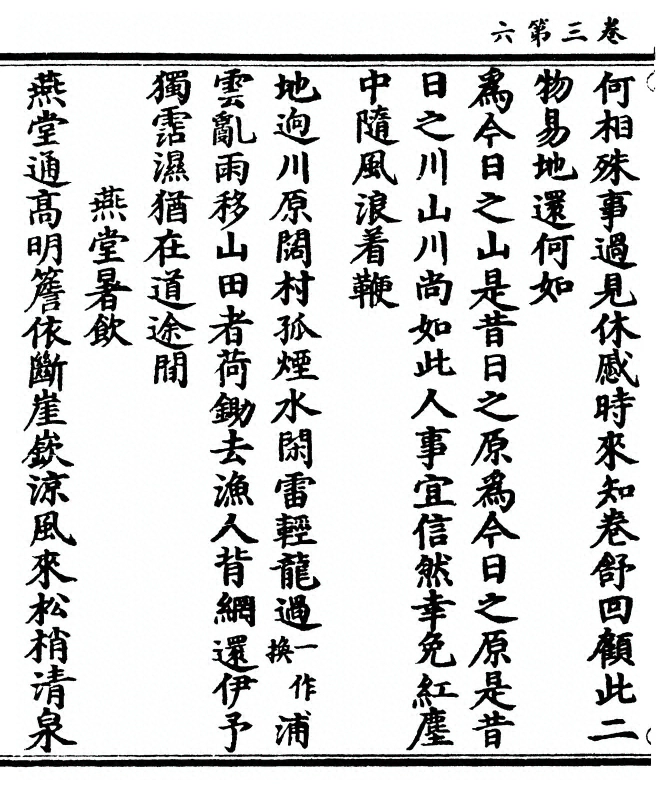 卷三第六
何相殊事過見休慼時來知卷舒回顧此二
物易地還何如
爲今日之山是昔日之原爲今日之原是昔
日之川山川尚如此人事宜信然幸免紅塵
中隨風浪着鞭
地逈川原闊村孤煙水閑雷輕龍過一作換浦
雲亂雨移山田者荷鋤去漁人背網還伊予
獨霑濕猶在道途間
燕堂暑飲
燕堂通高明簷依斷崖嶔涼風來松梢清泉